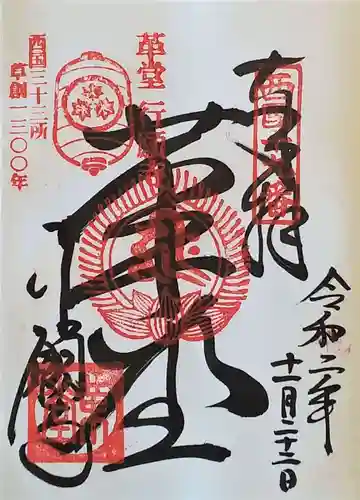 奉拝
西国十九番
令和二年
十一月二十二日
革堂
革堂 行願寺
行願寺
西国三十三所
草創一三〇〇年